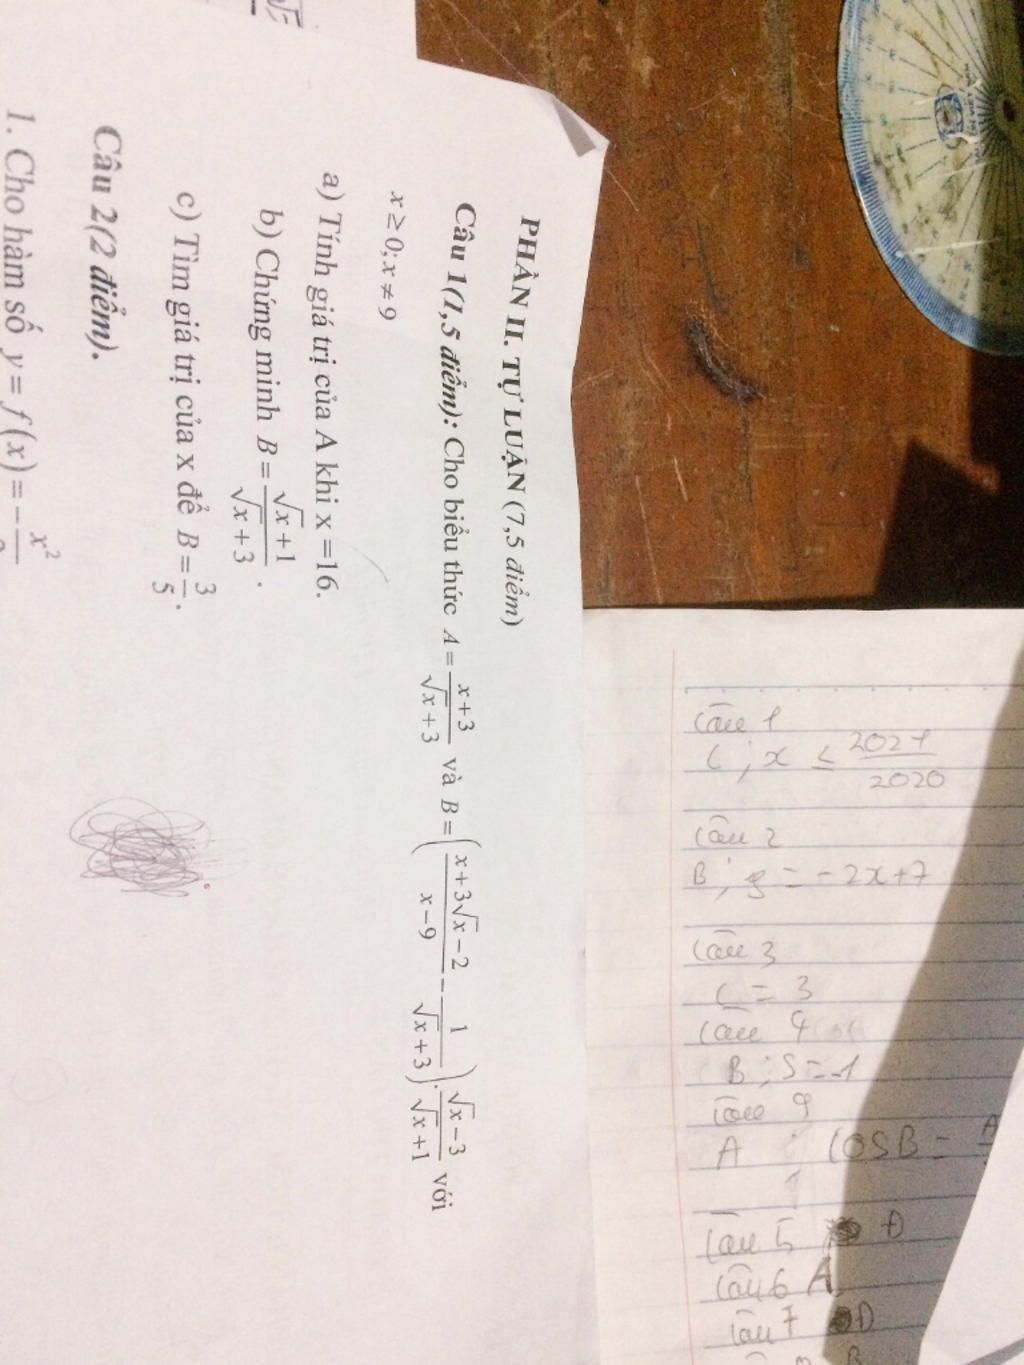 PHẦN II. TỰ LUẬN (7,5 điểm)
Câu 1(1,5 điểm): Cho biểu thức A = \frac{x+3}{\sqrt{x}+3} và B = \left(\frac{x+3\sqrt{x}-2}{x-9} - \frac{1}{\sqrt{x}+3}\right).\frac{\sqrt{x}-3}{\sqrt{x}+1} với
x ≥ 0; x ≠ 9
a) Tính giá trị của A khi x =16.
b) Chứng minh B = \frac{\sqrt{x}+1}{\sqrt{x}+3}.
c) Tìm giá trị của x để B = \frac{3}{5}.
Câu 2(2 điểm).
1. Cho hàm số y = f(x) = -\frac{x^2}{}
Câu 1
C ; x ≤ \frac{2021}{2020}
Câu 2
B ; y = -2x+7
Câu 3
C = 3
Câu 4
B ; S = -1
Câu 9
A ; COSB =
Câu 5 Đ
Câu 6 A
Câu 7 D
B